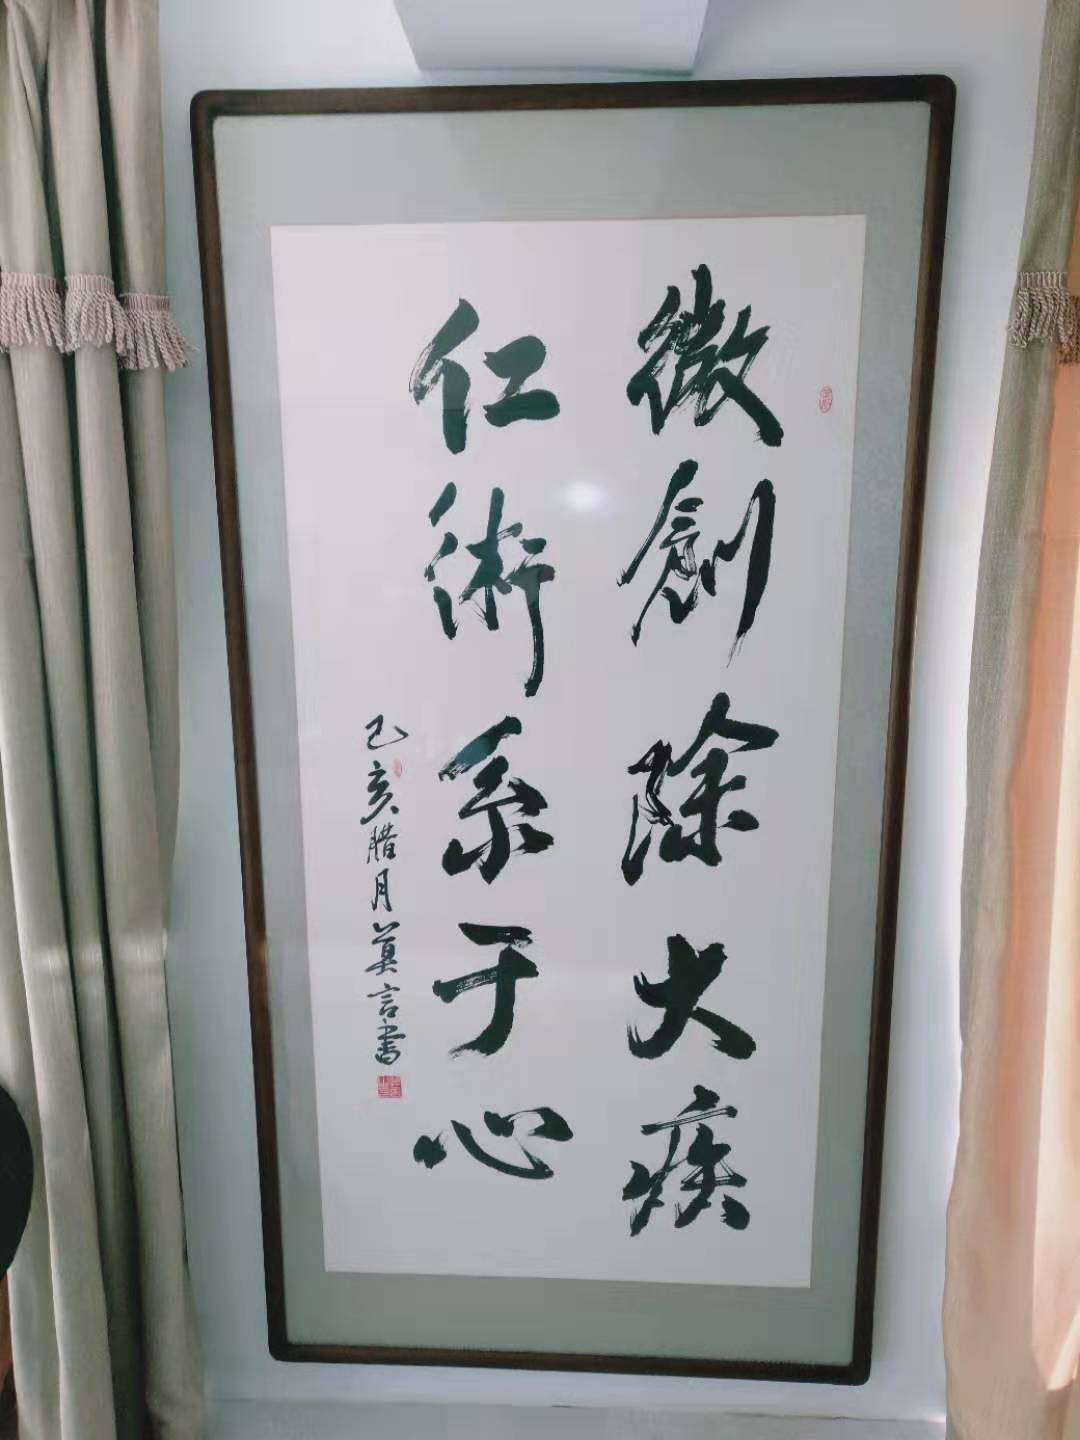 微創除大疾
仁術系于心
己亥腊月莫言書